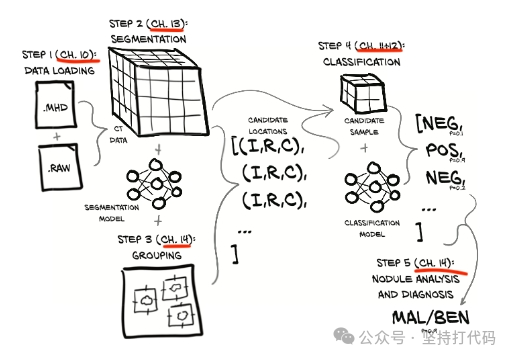 STEP 1 (CH. 10):
DATA LOADING
.MHD
+
.RAW
STEP 2 (CH. 13):
SEGMENTATION
CT
DATA
+
SEGMENTATION
MODEL
+
STEP 3 (CH. 14):
GROUPING
CANDIDATE
LOCATIONS
[(I,R,C),
(I,R,C),
(I,R,C),
...
]
STEP 4 (CH. 11+12):
CLASSIFICATION
CANDIDATE
SAMPLE
+
CLASSIFICATION
MODEL
[NEG,
P=0.1
POS,
P=0.9
NEG,
P=0.2
...
]
STEP 5 (CH. 14):
NODULE ANALYSIS
AND DIAGNOSIS
MAL/BEN
P=0.9
公众号 · 坚持打代码